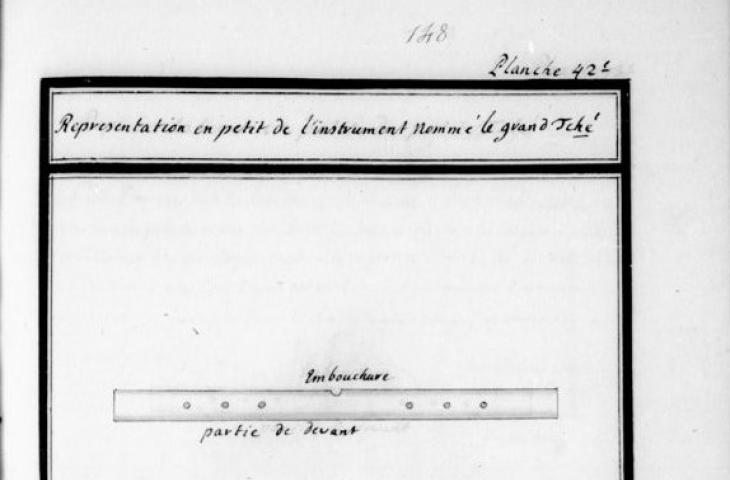 148
Planche 42ᵉ
Representation en petit de l'instrument nommé le grand Tché
Embouchure
partie de devant